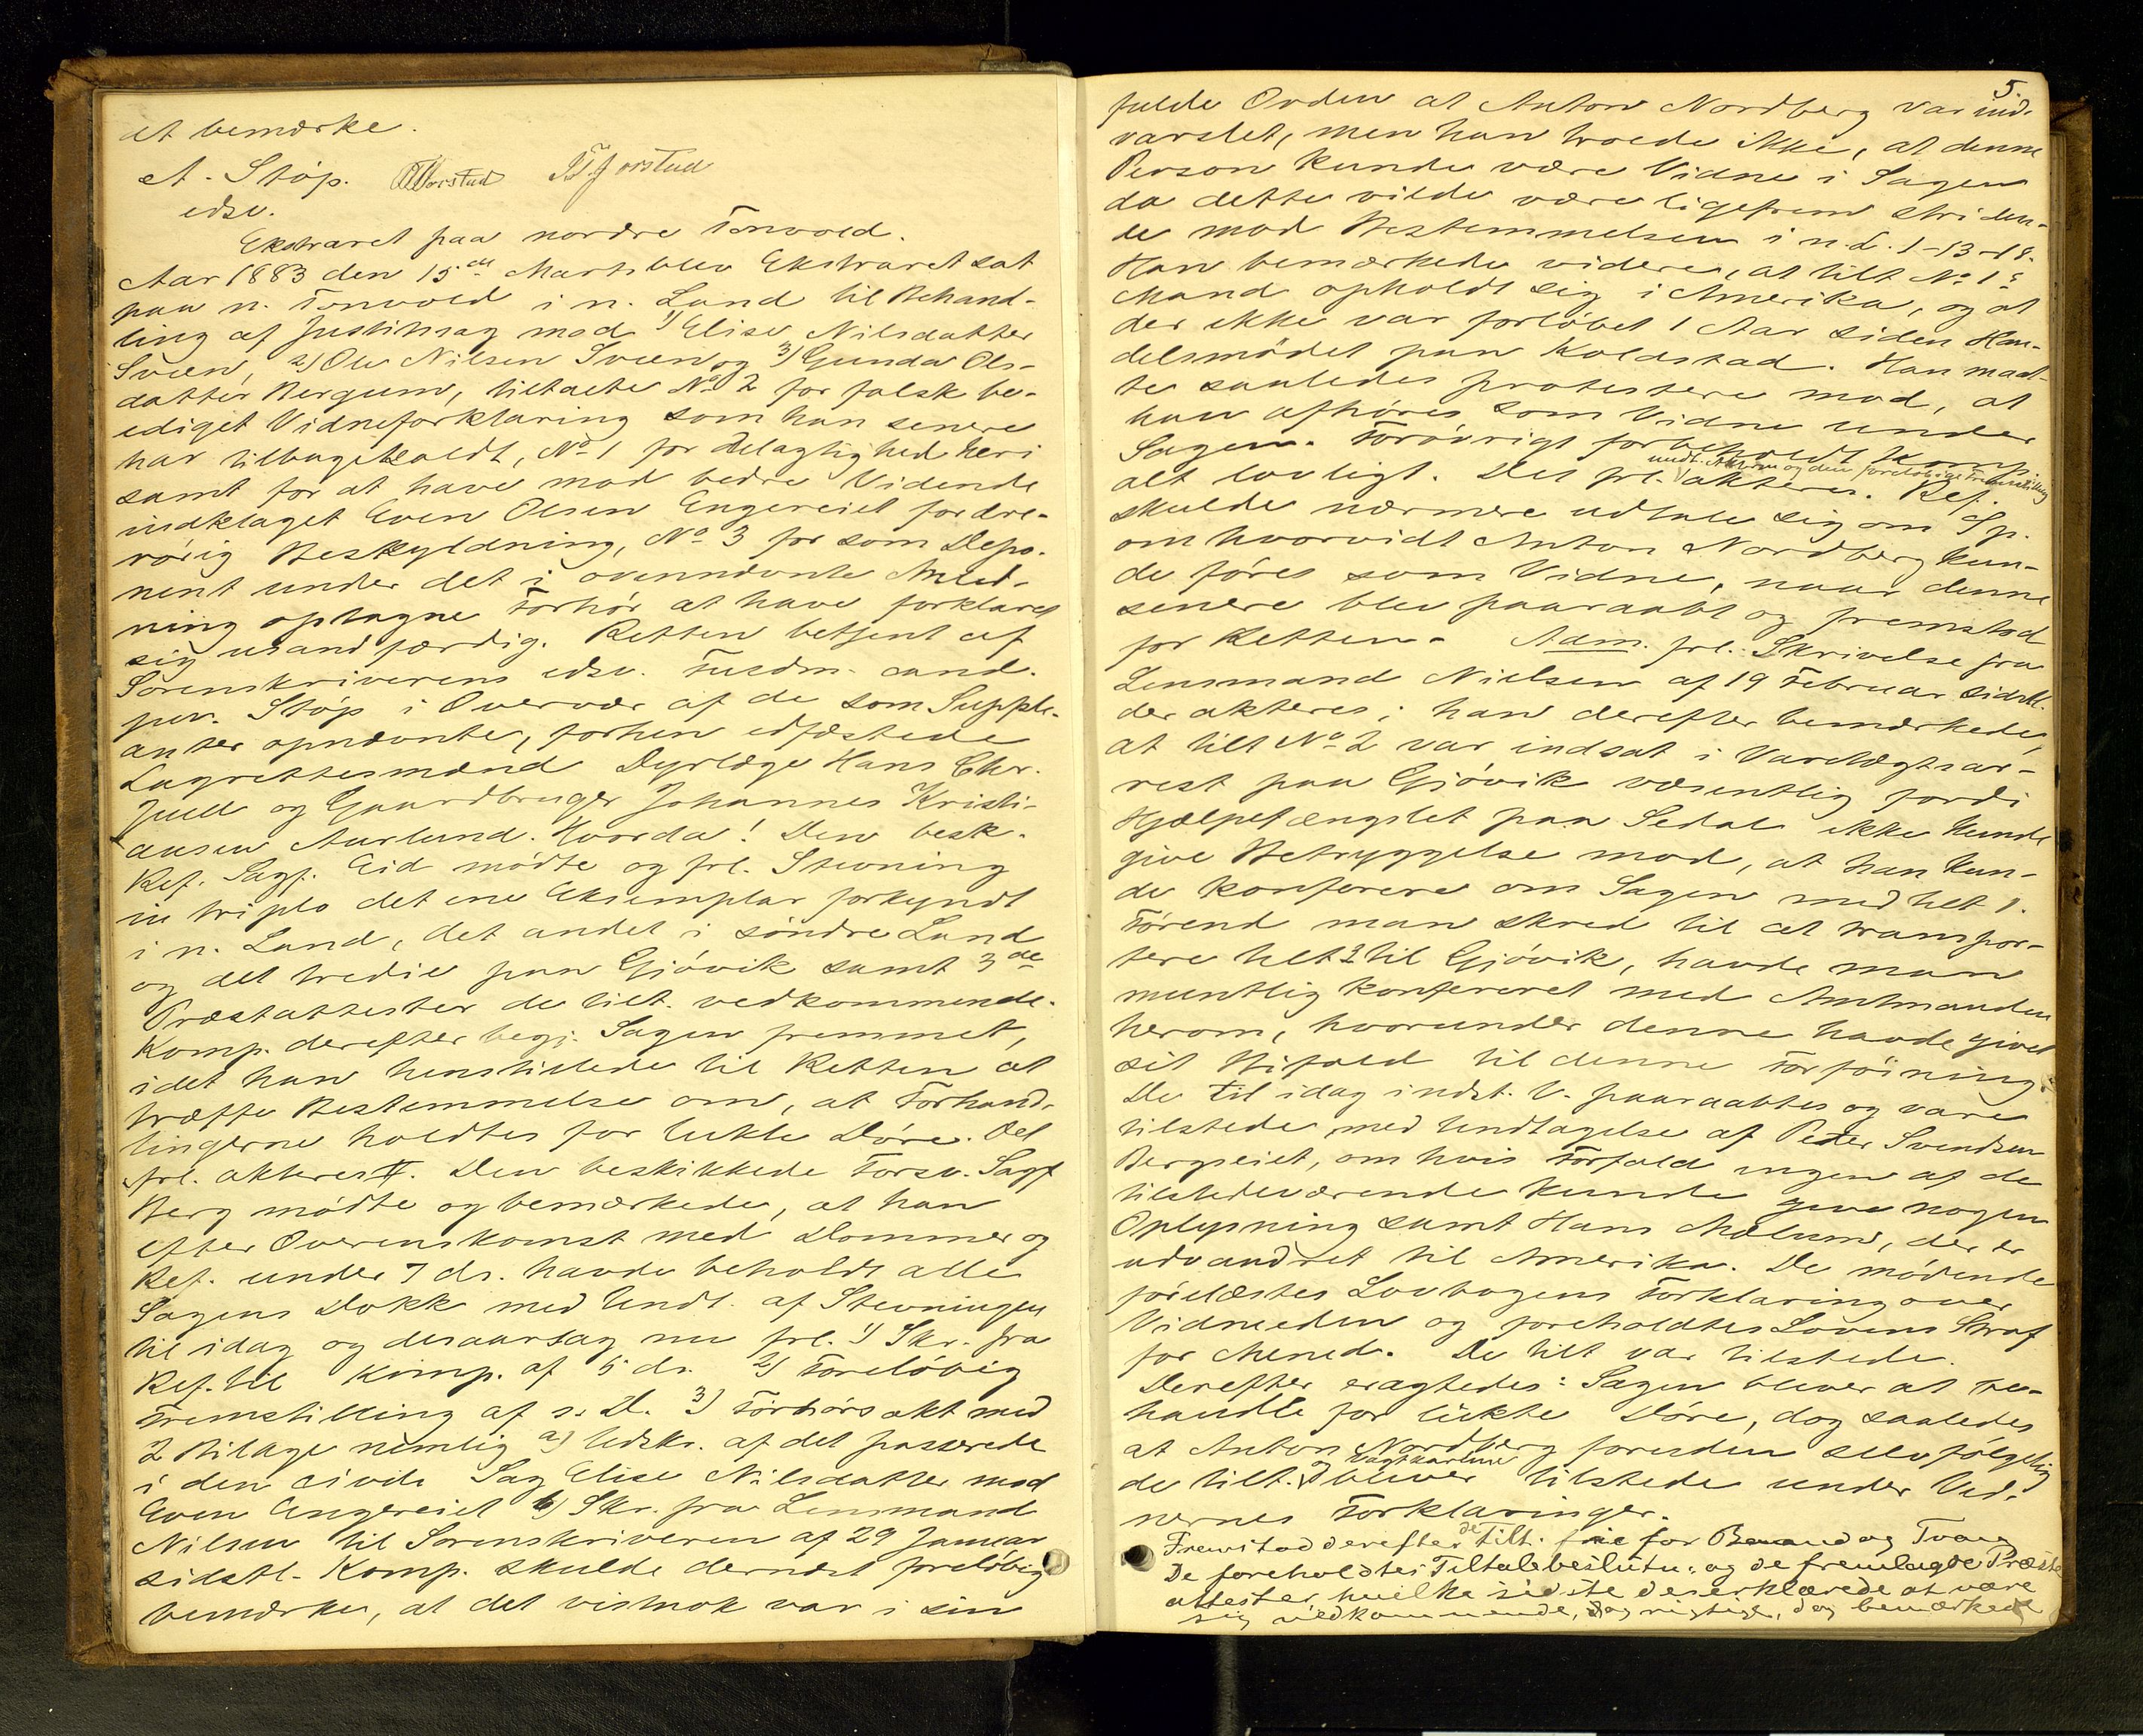 at bemærke.
A. Støp. OTorstad T. Tjorstad
edsv.
Ekstraret paa nordre Tonvold.
Aar 1883 den 15de Marts blev Ekstraret sat
paa n. Tonvold i n. Land til Behand-
ling af Justitssag mod 1) Elise Nilsdatter
Sveen, 2) Ole Nilsen Sveen og 3) Gunda Ols-
datter Bergum, tiltalte No 2 for falsk be-
ediget Vidneforklaring som han senere
har tilbagekaldt, No 1 for Delagtighed heri
samt for at have mod bedre Vidende
indklaget Even Olsen Engereiet for ære-
rørig Beskyldning, No 3 for som Depo-
nent under det i ovennævnte Anled-
ning optagne Forhør at have forklaret
sig usandfærdig. Retten betjent af
Sorenskriverens edsv. Fuldm. cand.
jur. Støp i Overvær af de som Supple-
anter opnævnte, forhen edfæstede
Lagrettesmænd Dyrlæge Hans Chr.
Juell og Gaardbruger Johannes Kristi-
ansen Aurlund. Hvorda! Den besk.
Ref. Sagf. Eid mødte og frl. Stevning
in triplo det ene Eksemplar forkyndt
i n. Land, det andet i søndre Land
og det tredie paa Gjøvik samt 3de
Præstattester de tilt. vedkommende.
Komp. derefter begj. Sagen fremmet,
idet han henstillede til Retten at
træffe Bestemmelse om, at Forhand-
lingerne holdtes for lukte Døre. Det
frl. akteres. Den beskikkede Forsv. Sagf
Berg mødte og bemærkede, at han
efter Overenskomst med Dommer og
Ref. under 7 ds. havde beholdt alle
Sagens Dokk med Undt. af Stevningen
til idag og desaarsag nu frl. 1) Skr. fra
Ref. til Komp. af 5 ds. 2) Foreløbig
Fremstilling af s. D. 3) Forhørsakt med
2 Bilage nemlig a) Udskr. af det passerede
i den civile Sag Elise Nilsdatter mod
Even Engereiet b) Skr. fra Lensmand
Nilsen til Sorenskriveren af 29 Januar
sidstl. Komp. skulde dernæst foreløbig
bemærke, at det vistnok var i sin
5.
fulde Orden at Anton Nordberg var ind-
varslet, men han troede ikke, at denne
Person kunde være Vidne i Sagen
da dette vilde være ligefrem striden-
de mod Bestemmelsen i n. L. 1-13-18.
Han bemærkede videre, at tilt No 1s
Mand opholdt sig i Amerika, og at
der ikke var forløbet 1 Aar siden Han-
delsmødet paa Koldstad. Han maat-
te saaledes protestere mod, at
han afhøres som Vidne under
Sagen. Forøvrigt forbeholdt Komp.
undt. Akten og den foreløbige Fremstilling
alt lovligt. Det frl. akteres. Ref.
skulde nærmere udtale sig om Sp.
om hvorvidt Anton Nordberg kun-
de føres som Vidne, naar denne
senere blev paaraabt og fremstod
for Retten. Adm. frl. Skrivelse fra
Lensmand Nielsen af 19 Februar sidstl.
der akteres; han derefter bemærkede,
at tilt No 2 var indsat i Varetægtsar-
rest paa Gjøvik væsentlig fordi
Hjælpefængslet paa Sedal ikke kunde
give Betryggelse mod, at han kun-
de konferere om Sagen med tilt 1.
Førend man skred til at transpor-
tere tilt 2 til Gjøvik, havde man
mundtlig konfereret med Amtmanden
herom, hvorunder denne havde givet
sit Bifald til denne Forføining.
De til idag indst. V. paaraabtes og vare
tilstede, med Undtagelse af Peder Svendsen
Bergseiet, om hvis Forfald ingen af de
tilstedeværende kunde give nogen
Oplysning samt Hans Mælum, der er
udvandret til Amerika. De mødende
forelæstes Lovbogens Forklaring over
Vidneeden og foreholdtes Lovens Straf
for Mened. De tilt var tilstede.
Derefter eragtedes: Sagen bliver at be-
handle for lukte Døre, dog saaledes
at Anton Nordberg foruden selvfølgelig
og Vagtkarlene
de tilt. bliver tilstede under Vid-
nernes Forklaringer.
Fremstod derefter de tilt. frie for Baand og Tvang
De foreholdtes Tiltalebeslutn: og de fremlagde Præste
attester, hvilke sidste de erklærede at være
sig vedkommende, og rigtige, dog bemærkede